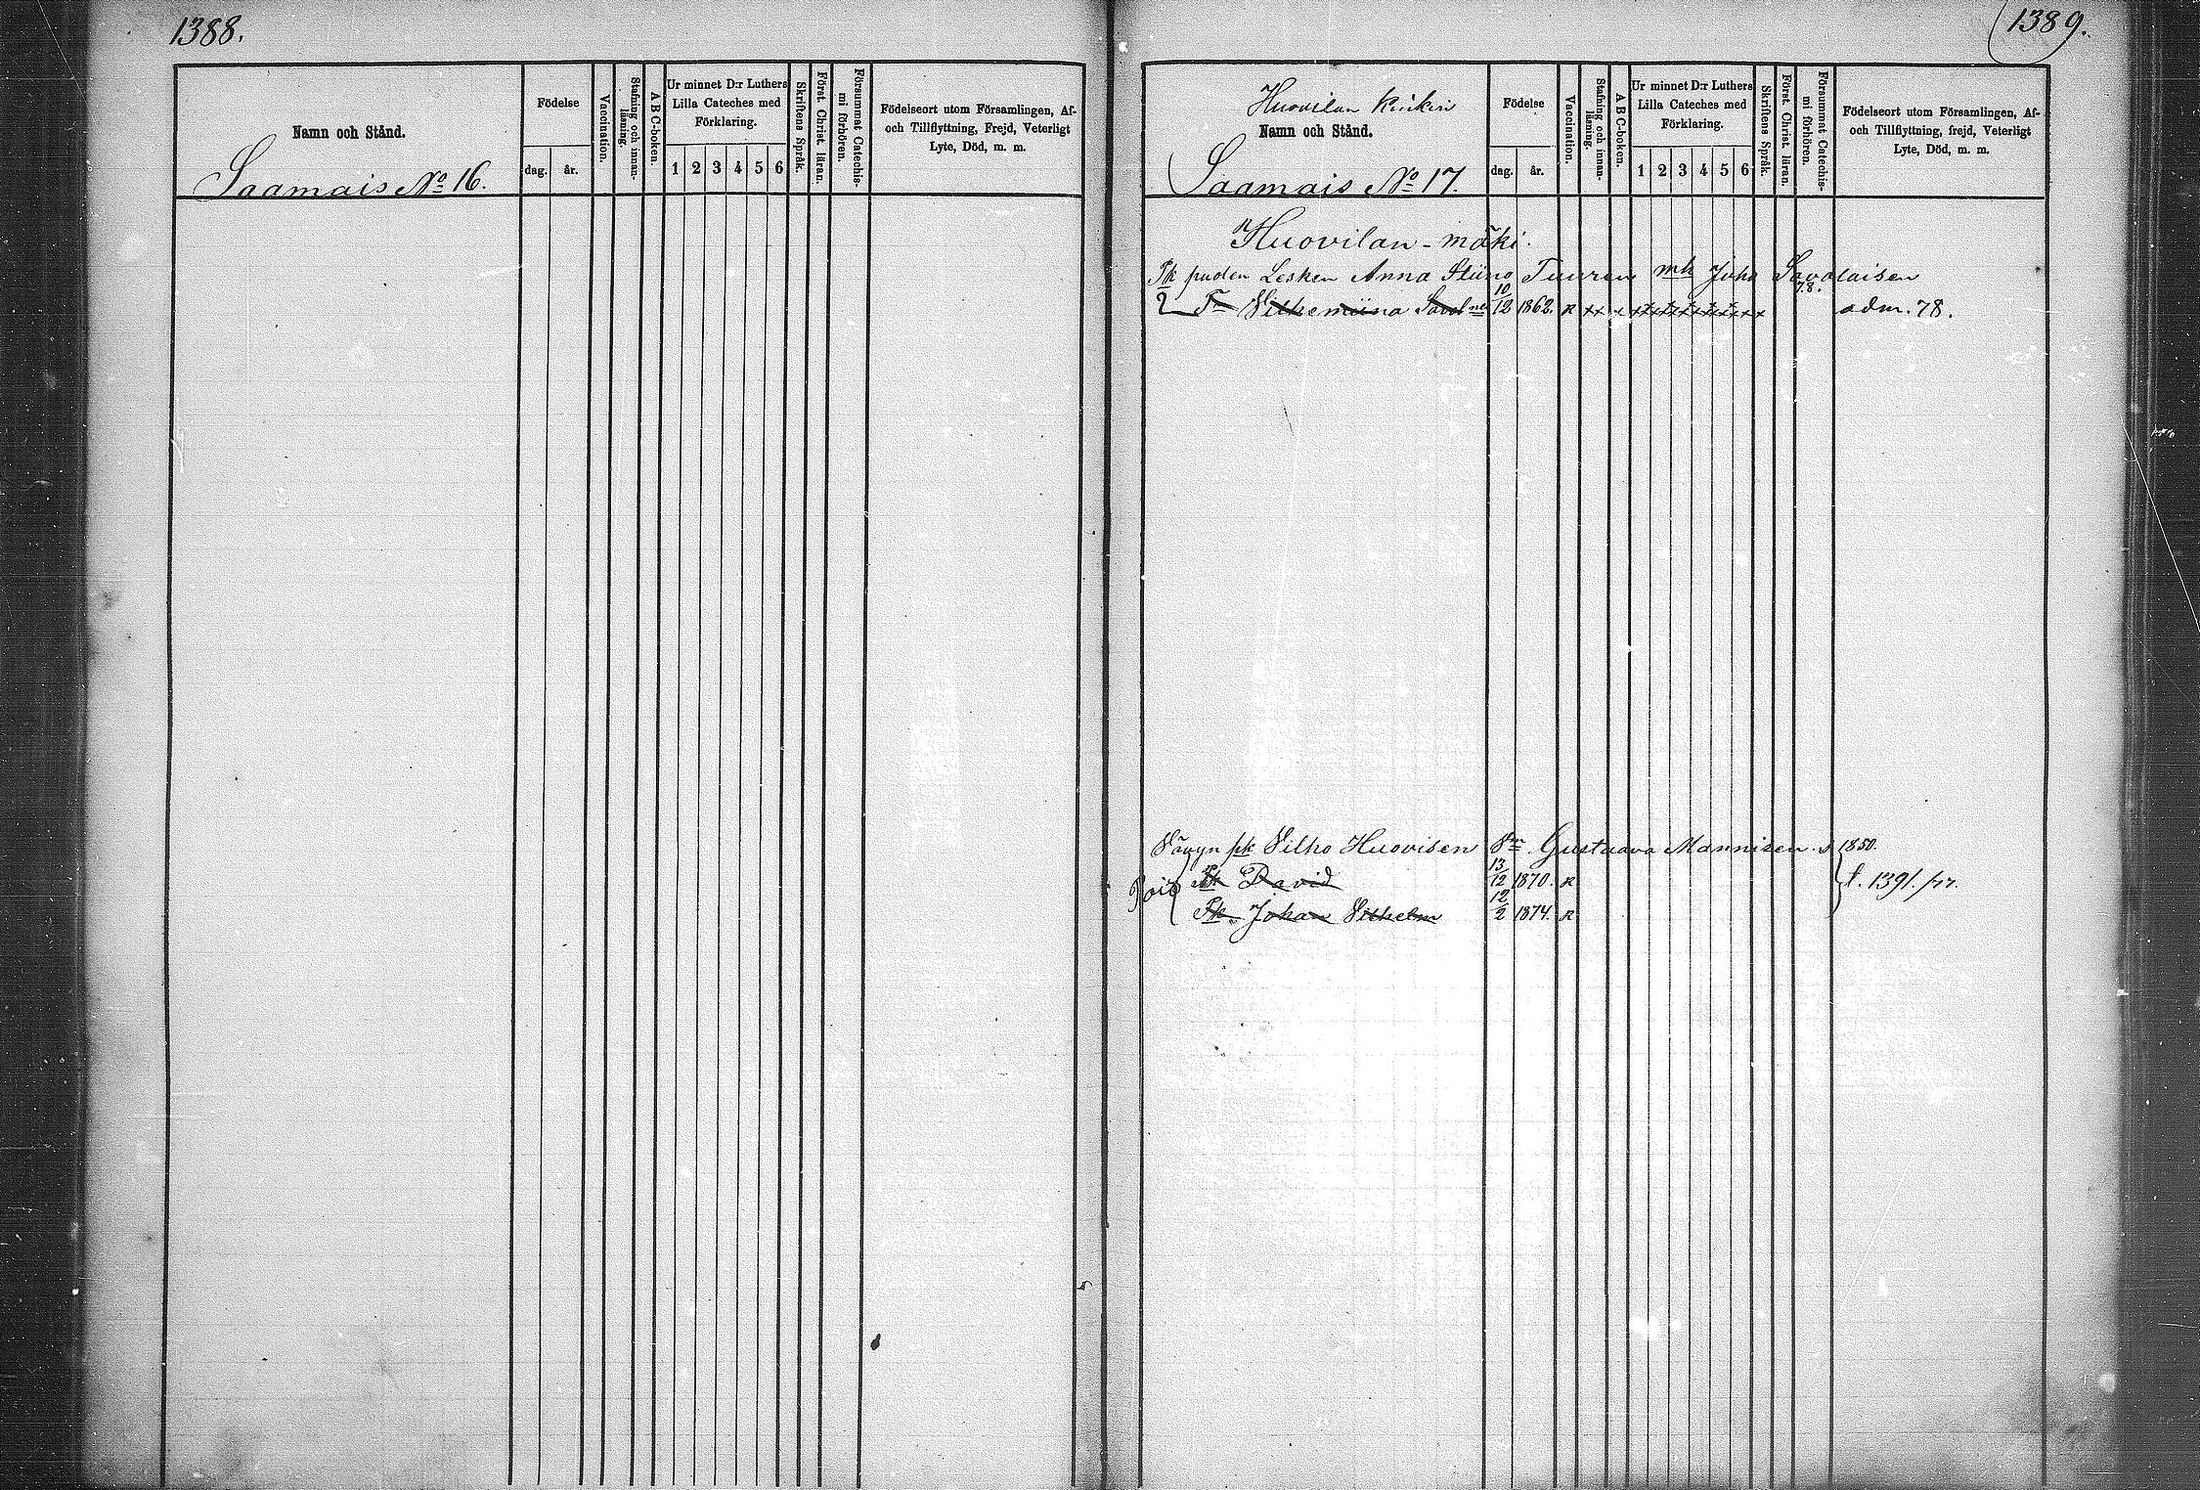 1388.
Namn och Stånd.
Saamais No 16.
Födelse
dag.
år.
Vaccination.
Stafning och innan-
läsning.
A B C-boken.
Ur minnet D:r Luthers
Lilla Cateches med
Förklaring.
1 2 3 4 5 6
Skriftens Språk.
Först. Christ. läran.
Försummat Catechis-
mi förhören.
Födelseort utom Församlingen, Af-
och Tillflyttning, Frejd, Veterligt
Lyte, Död, m. m.
1389.
Huovilan
Namn och Stånd.
Saamais No 17.
Födelse
dag.
år.
Vaccination.
Stafning och innan-
läsning.
A B C-boken.
Ur minnet D:r Luthers
Lilla Cateches med
Förklaring.
1 2 3 4 5 6
Skriftens Språk.
Först. Christ. läran.
Försummat Catechis-
mi förhören.
Födelseort utom Församlingen, Af-
och Tillflyttning, frejd, Veterligt
Lyte, Död, m. m.
Huovilan-mäki.
Pk puolen Lesken Anna Stiina Tuuren mk Juho Savolaisen
Tr Vilhemiina Savolnen 10/12 1862. R xx x xxxxxxxxxxxxx 78. adm. 78.
Vävyn pk Vilho Huovisen Vr Gustaava Mannisen s 1850.
Pois Pk David 13/12 1870. R f. 1391. /77.
Pk. Johan Vilhelm 12/2 1874. R